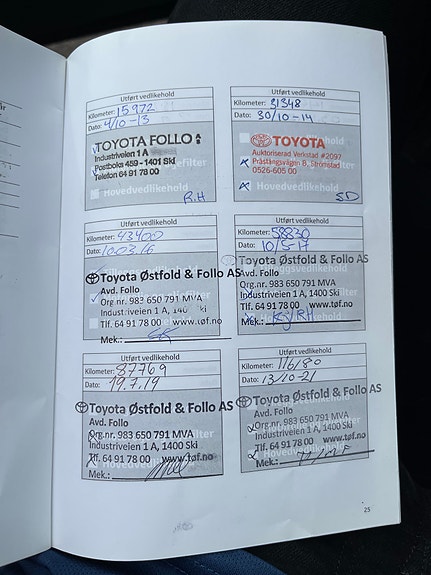 Utført vedlikehold
Kilometer: 15972
Dato: 4/10-13
TOYOTA FOLLO AS
Industriveien 1 A
Postboks 459 - 1401 Ski
Telefon 64 91 78 00
Hovedvedlikehold
R.H
Utført vedlikehold
Kilometer: 31348
Dato: 30/10-14
TOYOTA
Auktoriserad Verkstad #2097
Prästängsvägen 8, Strömstad
0526-605 00
Hovedvedlikehold
SD
Utført vedlikehold
Kilometer: 43400
Dato: 10.03.16
Toyota Østfold & Follo AS
Avd. Follo
Org.nr. 983 650 791 MVA
Industriveien 1 A, 1400 Ski
Tlf. 64 91 78 00 www.tøf.no
Mek.:
Utført vedlikehold
Kilometer: 58830
Dato: 10/5-17
Toyota Østfold & Follo AS
Avd. Follo
Org.nr. 983 650 791 MVA
Industriveien 1 A, 1400 Ski
Tlf. 64 91 78 00 www.tøf.no
Mek.:
Utført vedlikehold
Kilometer: 87769
Dato: 19.7.19
Toyota Østfold & Follo AS
Avd. Follo
Org.nr. 983 650 791 MVA
Industriveien 1 A, 1400 Ski
Tlf. 64 91 78 00 www.tøf.no
Hovedvedlikehold
Mek.:
Utført vedlikehold
Kilometer: 116180
Dato: 13/10-21
Toyota Østfold & Follo AS
Avd. Follo
Org.nr. 983 650 791 MVA
Industriveien 1 A, 1400 Ski
Tlf. 64 91 78 00 www.tøf.no
Mek.:
25